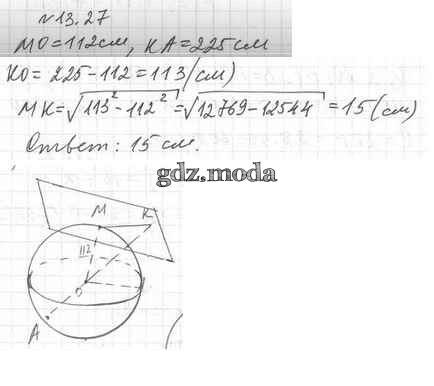 №13.27
MO=112см, KA=225см
KO=225-112=113(см)
MK=√113²-112²=√12769-12544=15(см)
Ответ: 15 см.
gdz.moda
M K
112
O
A